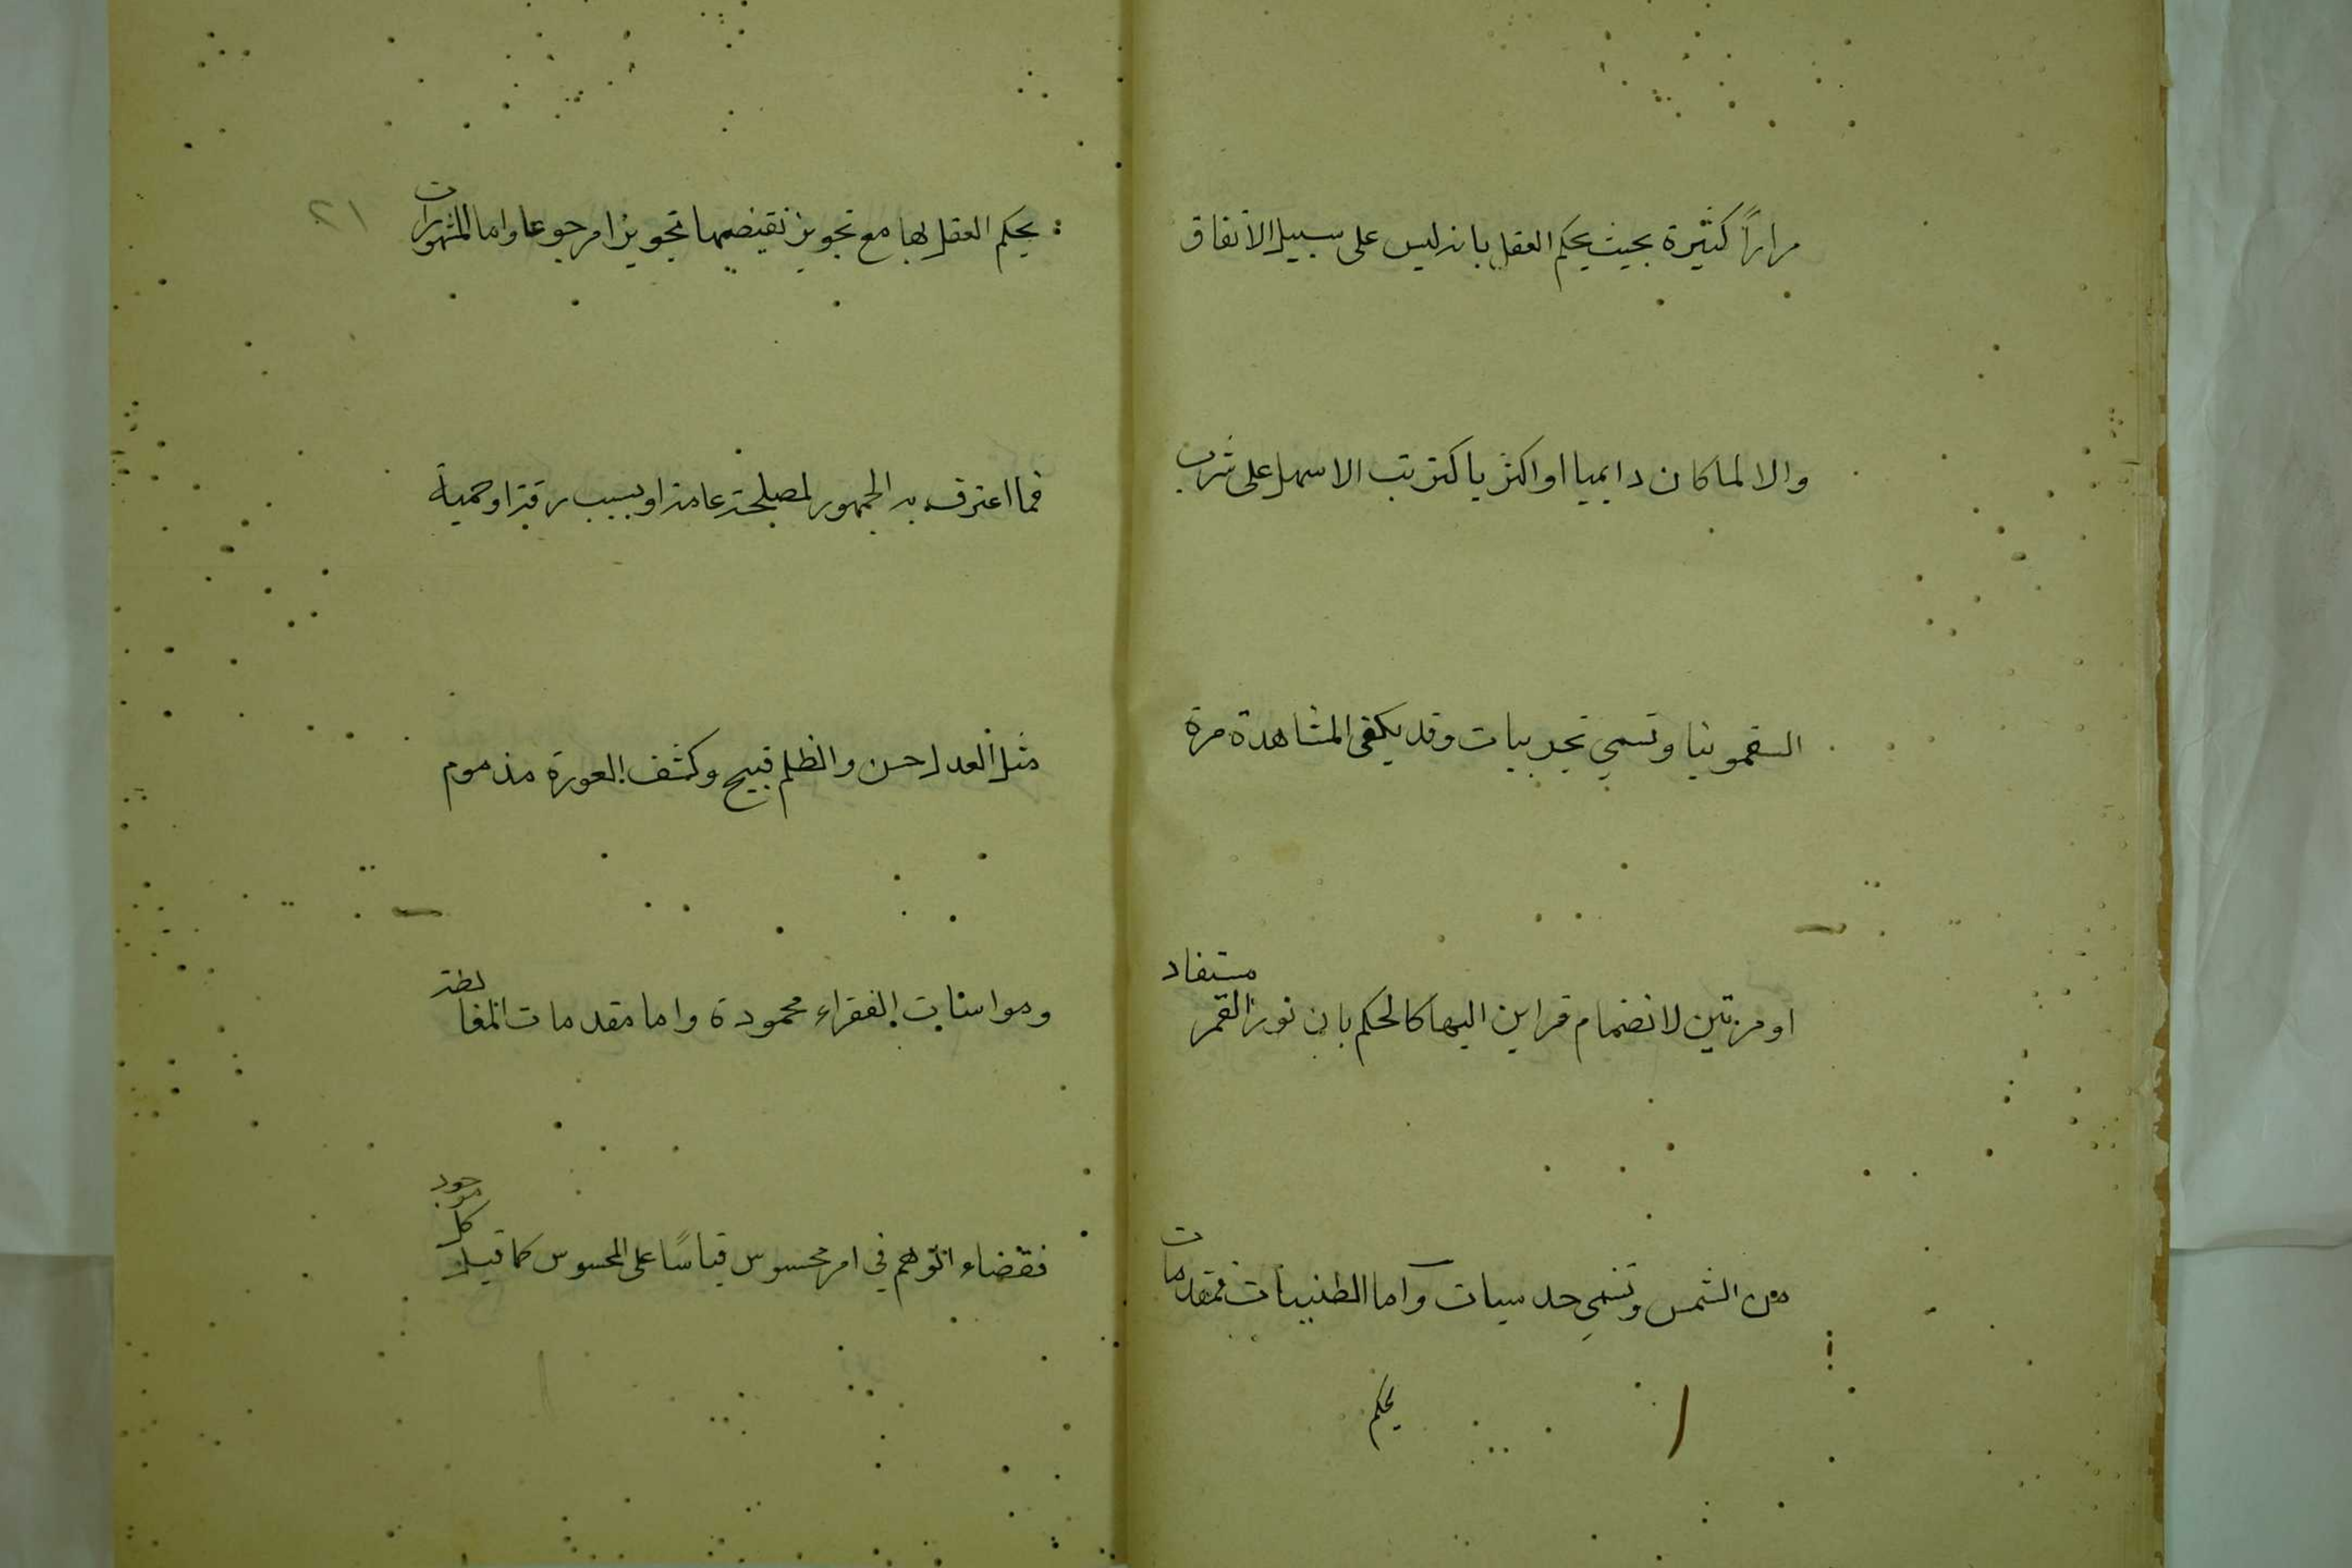 مراراً كثيرة بحيث يحكم العقل بانه ليس على سبيل الاتفاق
والا لما كان دايميا او اكثريا كترتب الاسهل على شرب
السقمونيا وتسمي تجربيات وقد يكفى المشاهدة مرة
او مرتين لانضمام قراين اليها كالحكم بان نور القمر مستفاد
من الشمس وتسمي حدسيات واما الظنيات فمقدمات
يحكم
٢١
يحكم العقل بها مع تجويز نقيضها تجويزا مرجوعا واما المشهورات
فما اعترف به الجمهور لمصلحة عامة او بسبب رقة او حمية
مثل العدل حسن والظلم قبيح وكشف العورة مذموم
ومواسات الفقراء محمودة واما مقدمات المغالطة
فقضاء الوهم في امر محسوس قياسًا على المحسوس كما قيل كل موجود